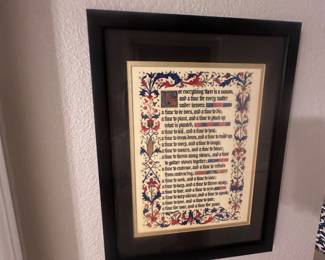 For everything there is a season,
and a time for every matter
under heaven:
a time to be born, and a time to die;
a time to plant, and a time to pluck up
what is planted;
a time to kill, and a time to heal;
a time to break down, and a time to build up;
a time to weep, and a time to laugh;
a time to mourn, and a time to dance;
a time to throw away stones, and a time
to gather stones together;
a time to embrace, and a time to refrain
from embracing;
a time to seek, and a time to lose;
a time to keep, and a time to throw away;
a time to tear, and a time to sew;
a time to keep silence, and a time to speak;
a time to love, and a time to hate;
a time for war, and a time for peace.